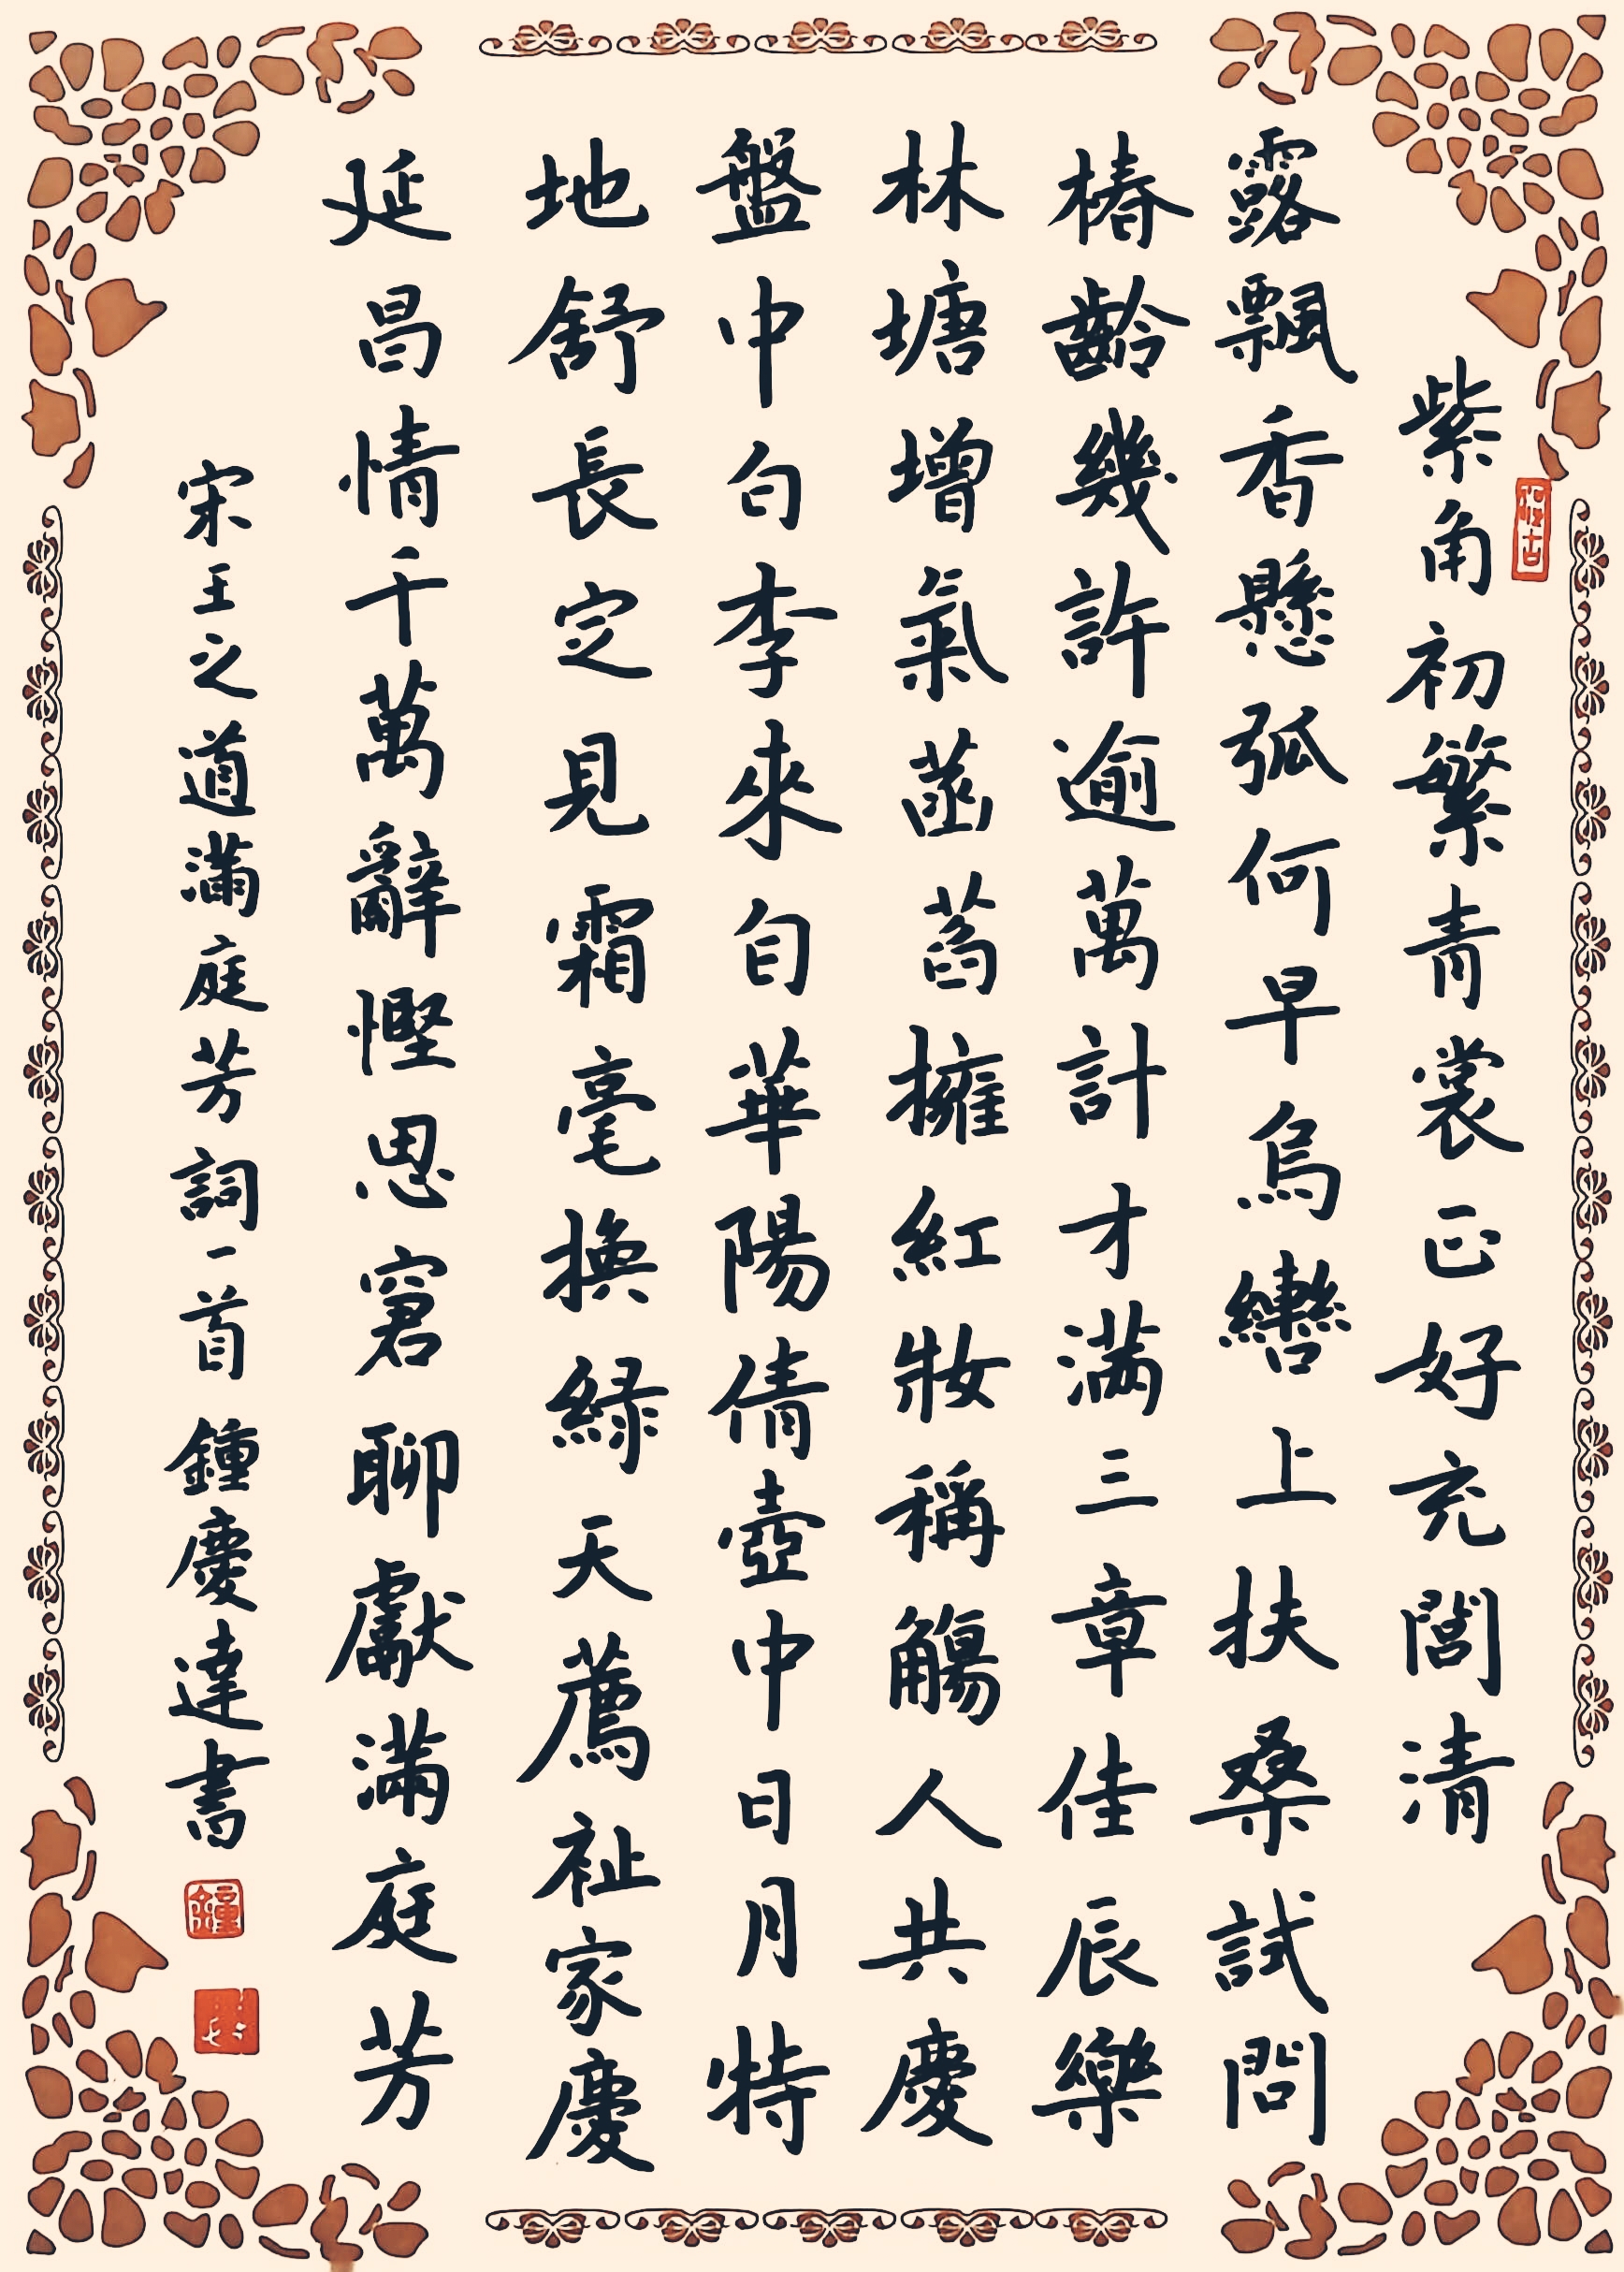 紫角初繁青裳正好充閭清
露飄香懸弧何早烏轡上扶桑試問
椿齡幾許逾萬計才滿三章佳辰樂
林塘增氣菡萏擁紅妝稱觴人共慶
盤中白李來自華陽倩壺中日月特
地舒長定見霜毫換綠天薦祉家慶
延昌情千萬辭慳思窘聊獻滿庭芳
宋王之道滿庭芳詞一首 鍾慶達書
鐘